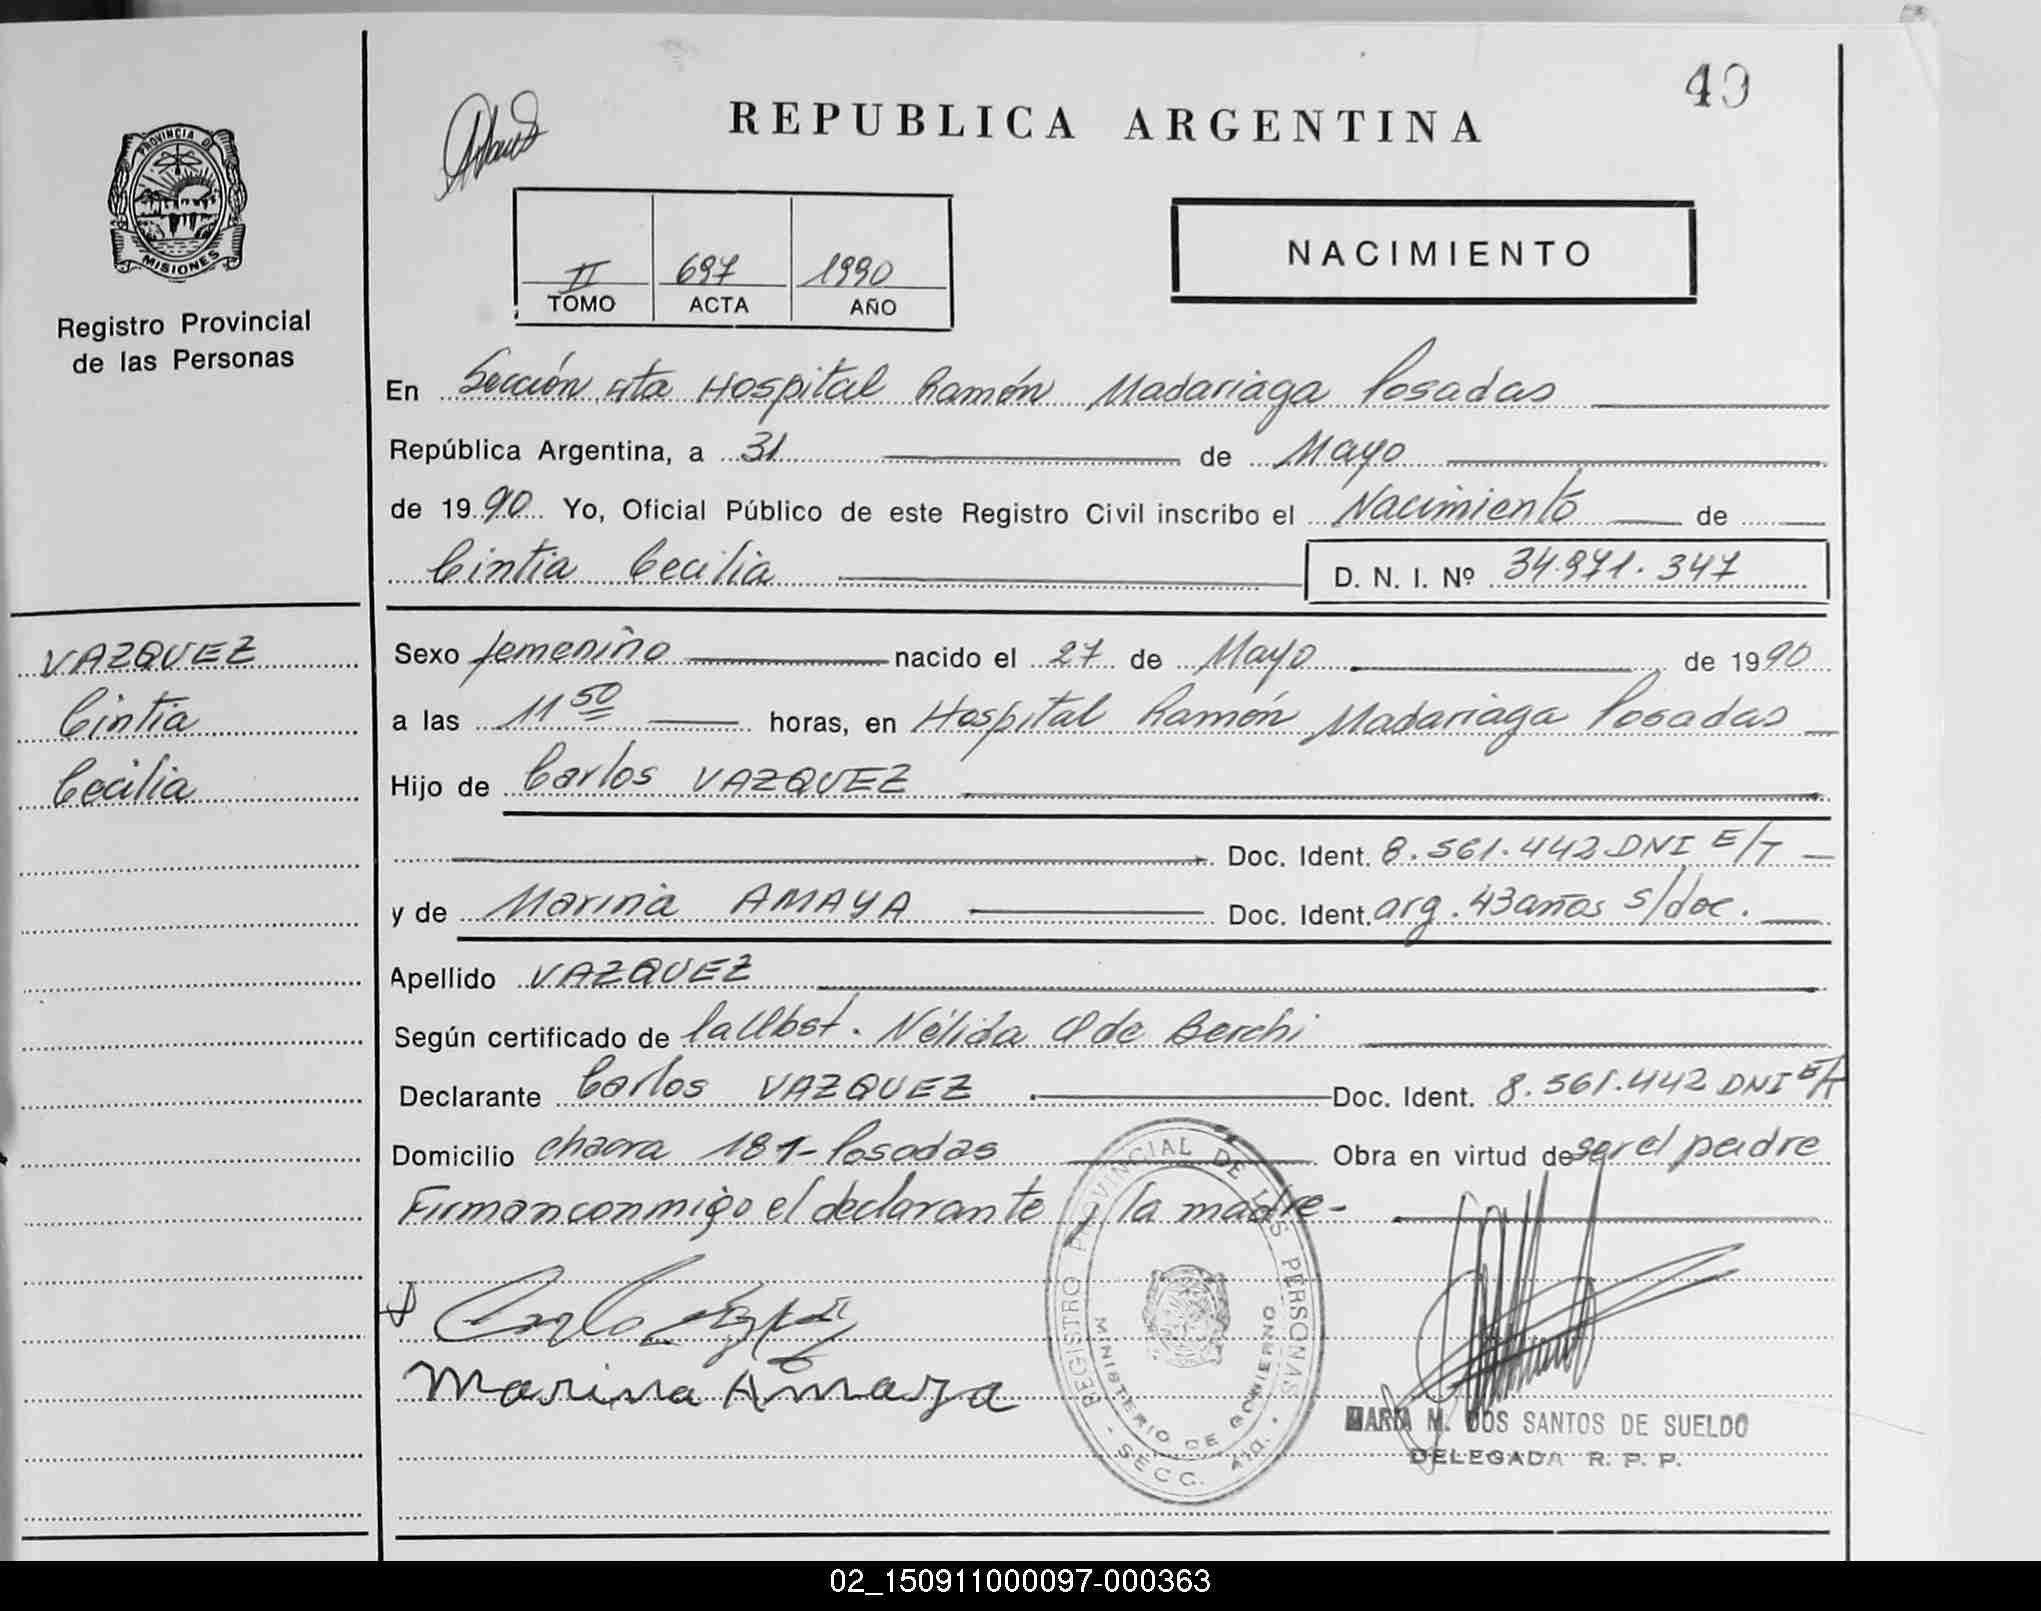 49
REPUBLICA ARGENTINA
PROVINCIA D
MISIONES
Registro Provincial
de las Personas
II 697 1990
TOMO ACTA AÑO
NACIMIENTO
En Sección 4ta Hospital Ramón Madariaga Posadas
República Argentina, a 31 de Mayo
de 1990 Yo, Oficial Público de este Registro Civil inscribo el Nacimiento de
Cintia Cecilia D. N. I. Nº 34.971.347
VAZQUEZ
Cintia
Cecilia
Sexo femenino nacido el 27 de Mayo de 1990
a las 11 50 horas, en Hospital Ramón Madariaga Posadas
Hijo de Carlos VAZQUEZ
Doc. Ident. 8.561.442 DNI E/T
y de Marina AMAYA Doc. Ident. arg. 43 años s/doc.
Apellido VAZQUEZ
Según certificado de la Obst. Nélida O de Berchi
Declarante Carlos VAZQUEZ Doc. Ident. 8.561.442 DNI E/T
Domicilio chacra 181-Posadas Obra en virtud de ser el padre
Firman conmigo el declarante y la madre-
Marina Amaya
REGISTRO PROVINCIAL DE LAS PERSONAS
MINISTERIO DE GOBIERNO
- SECC. 4TA. -
MARIA M. DOS SANTOS DE SUELDO
DELEGADA R. P. P.
02_150911000097-000363